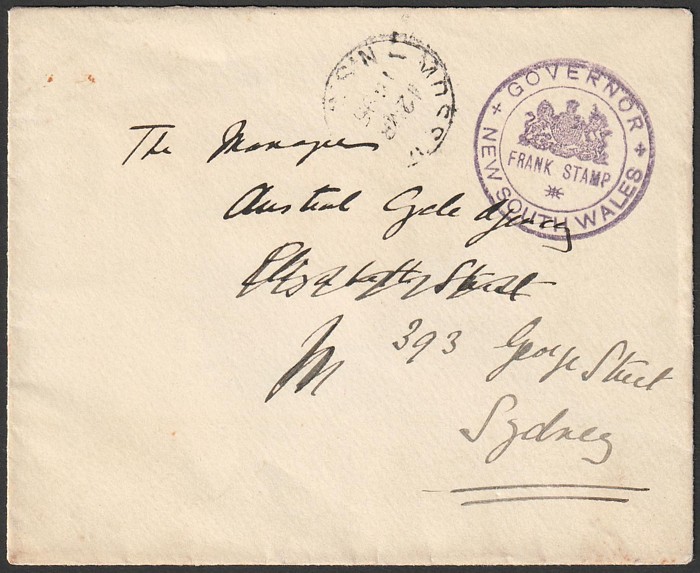 GOVERNOR
NEW SOUTH WALES
FRANK STAMP
The Manager
Austral Cycle Agency
Elizabeth Street
M 393 George Street
Sydney